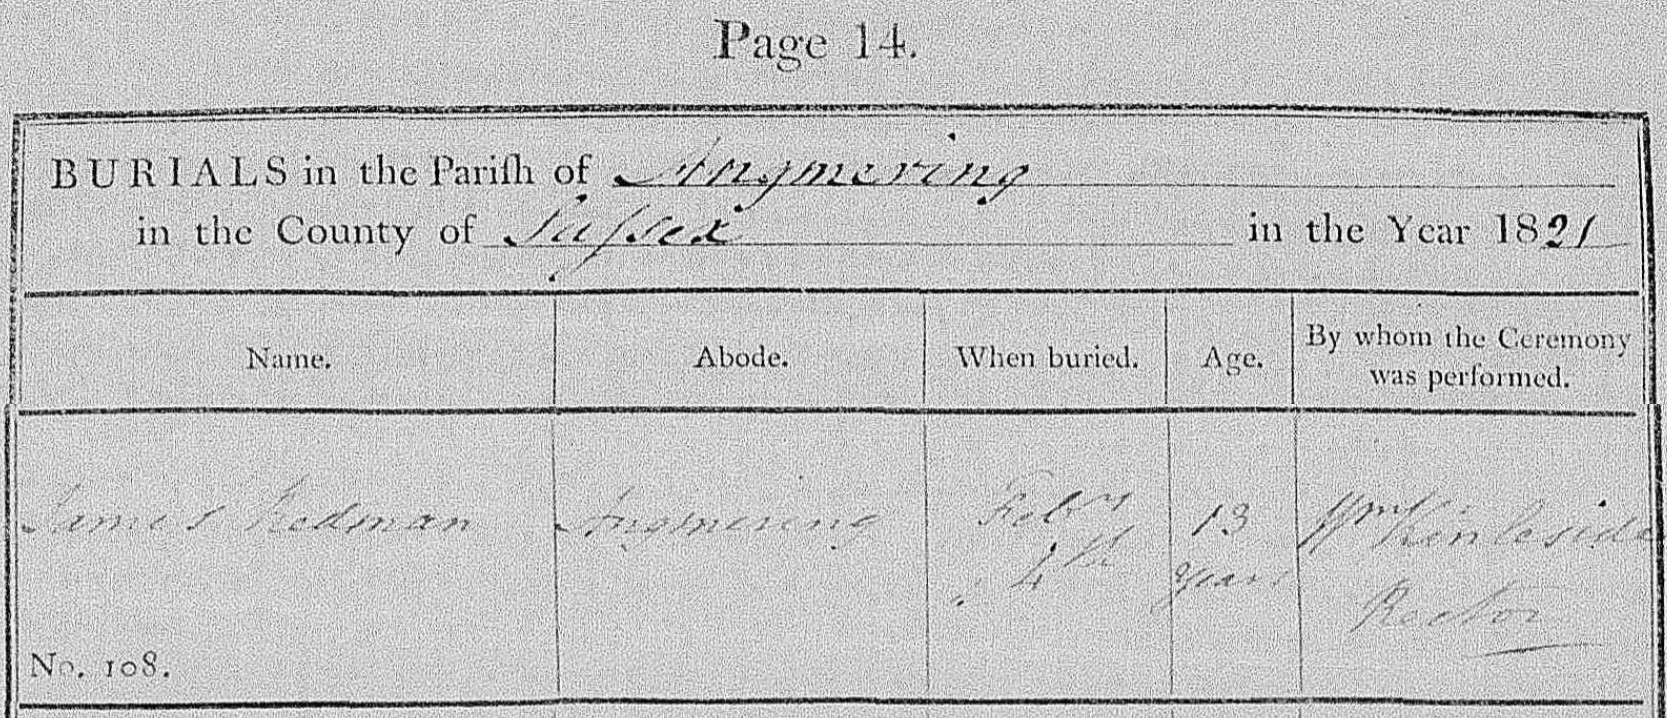 Page 14.
BURIALS in the Pariſh of Angmering
in the County of Suſsex in the Year 1821
Name. Abode. When buried. Age. By whom the Ceremony
was performed.
James Redman Angmering Febry 13 Wm Kinleside
4th Years Rector
No. 108.